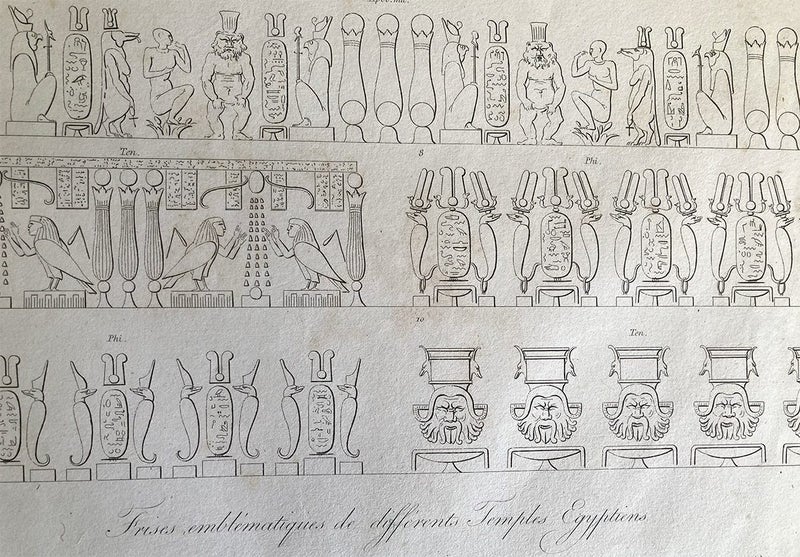 Ten.
8
Phi.
Phi.
10
Ten.
Frises emblématiques de différents Temples Egyptiens